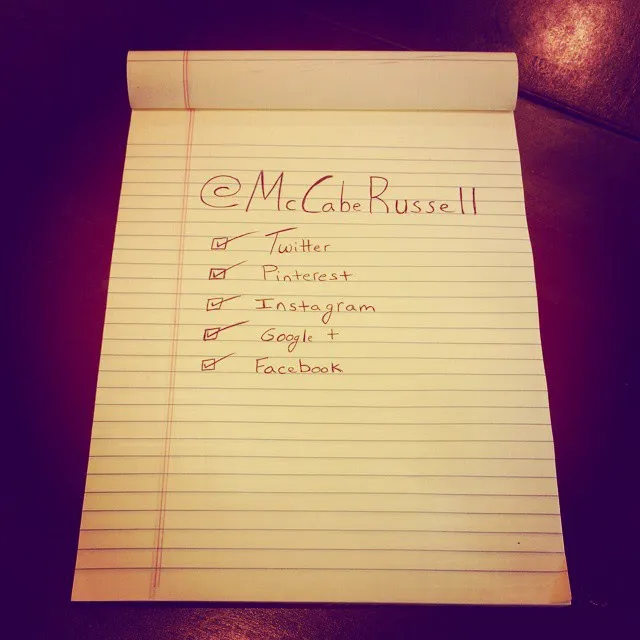 @McCabeRussell
Twitter
Pinterest
Instagram
Google +
Facebook